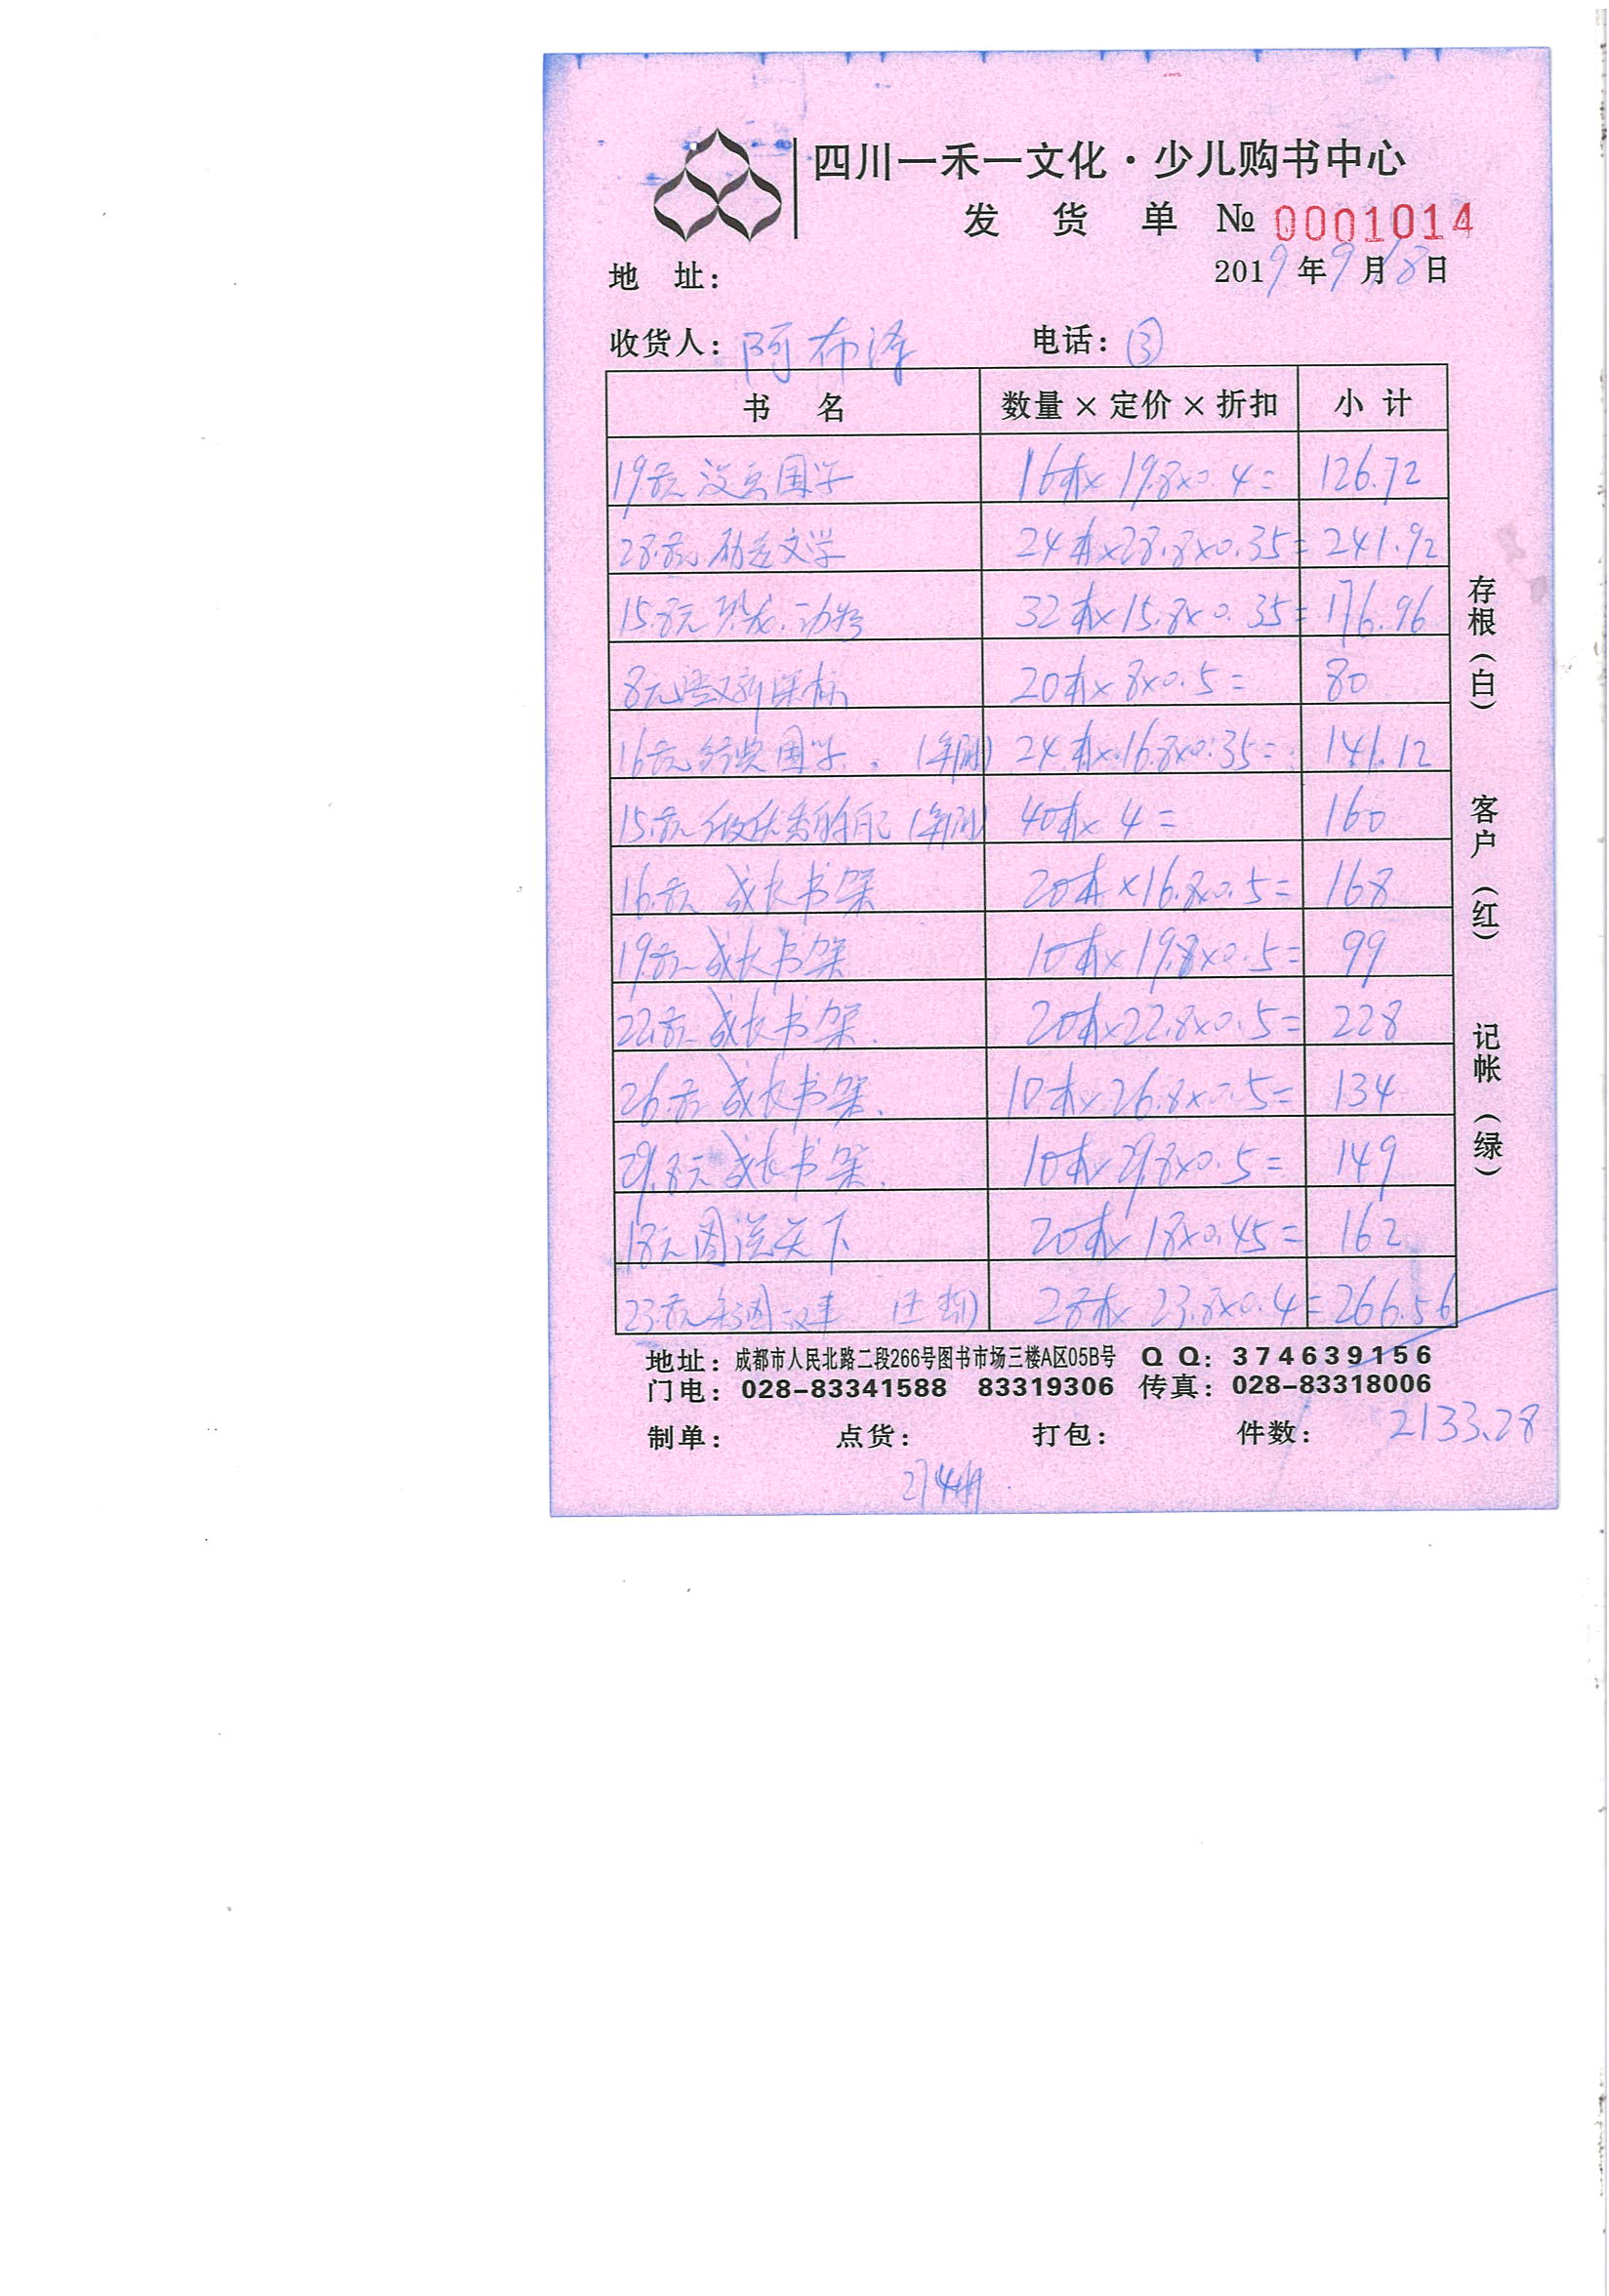 四川一禾一文化·少儿购书中心
发 货 单 № 0001014
地 址: 2019年9月18日
收货人: 阿布泽 电话: ③
书 名 数量×定价×折扣 小 计
19.8元 国学 16本×19.8×0.4= 126.72
28.8元 励志文学 24本×28.8×0.35= 241.92
15.8元 恐龙.动物 32本×15.8×0.35= 176.96
8元 语文新课标 20本×8×0.5= 80
16.8元 经典国学. 24本×16.8×0.35= 141.12
15.8元 做优秀的自己 40本×4= 160
16.8元 成长书架 20本×16.8×0.5= 168
19.8元 成长书架 10本×19.8×0.5= 99
22.8元 成长书架. 20本×22.8×0.5= 228
26.8元 成长书架. 10本×26.8×0.5= 134
29.8元 成长书架. 10本×29.8×0.5= 149
18元 图说天下 20本×18×0.45= 162
23.8元 28本×23.8×0.4= 266.56
存根(白) 客户(红) 记帐(绿)
地址: 成都市人民北路二段266号图书市场三楼A区05B号 QQ: 374639156
门电: 028-83341588 83319306 传真: 028-83318006
制单: 点货: 打包: 件数: 2133.28
274册